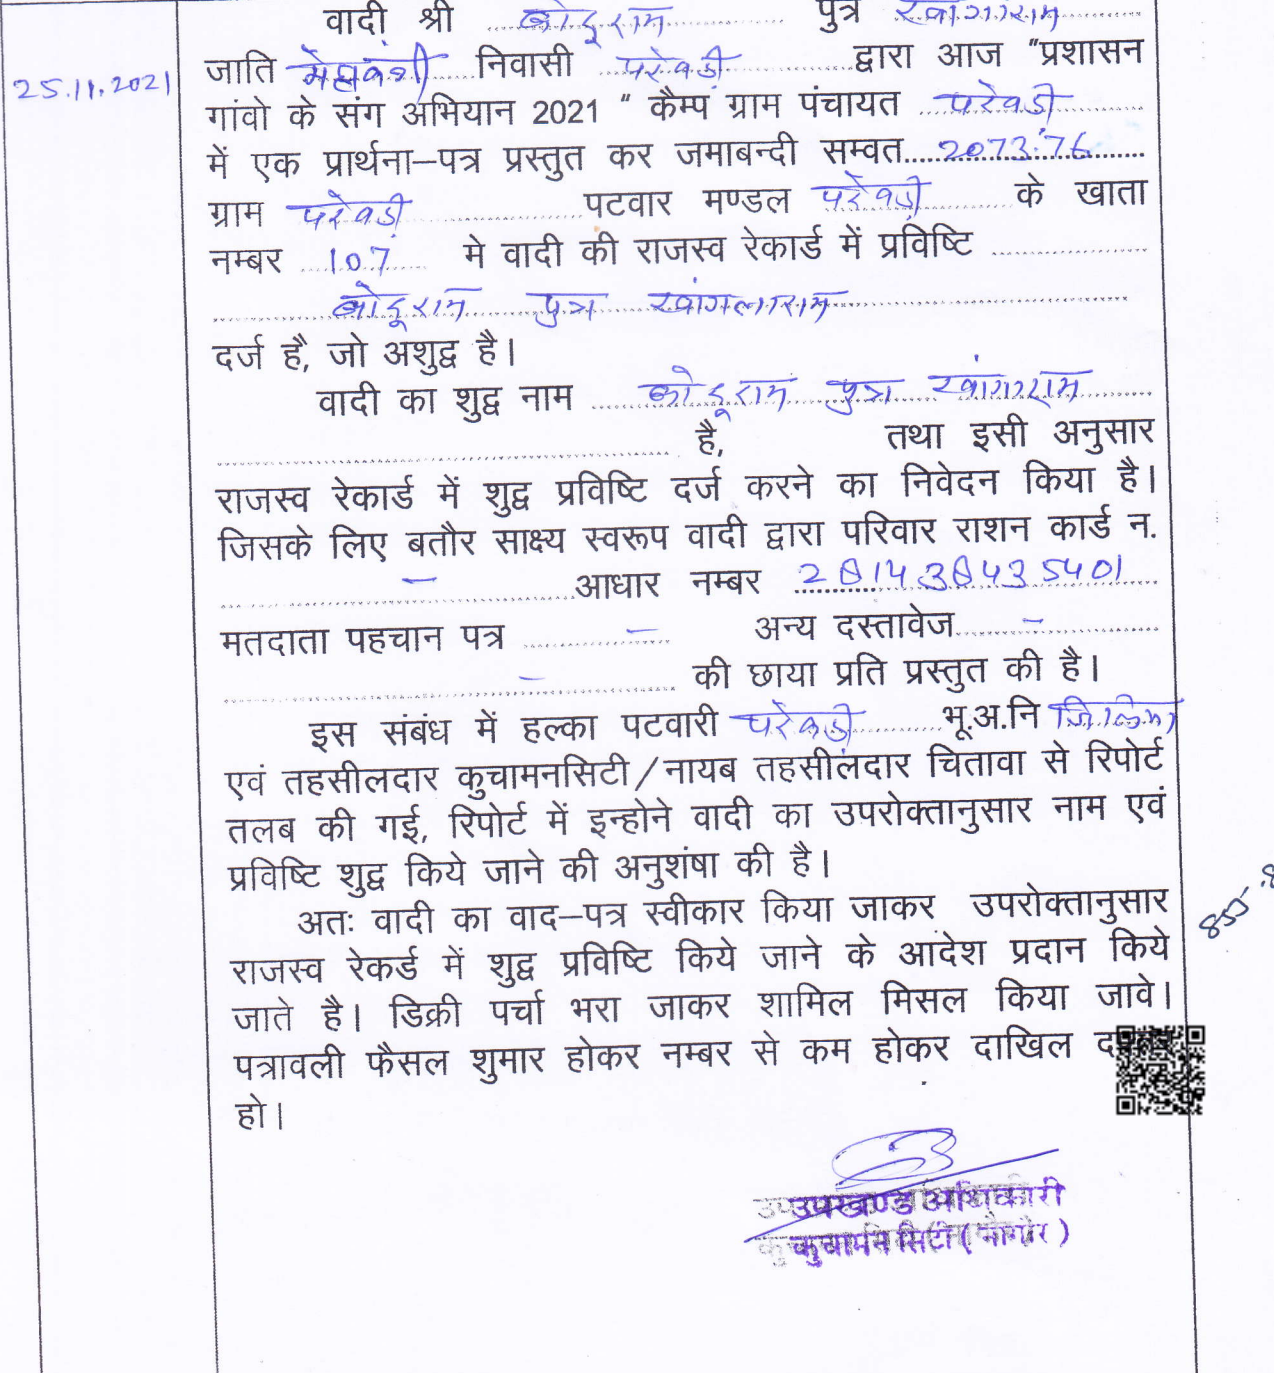 वादी श्री कोडूराम पुत्र खांगाराम
25.11.2021
जाति मेघवंशी निवासी परेवडी द्वारा आज "प्रशासन
गांवो के संग अभियान 2021 " कैम्प ग्राम पंचायत परेवडी
में एक प्रार्थना–पत्र प्रस्तुत कर जमाबन्दी सम्वत 2073-76
ग्राम परेवडी पटवार मण्डल परेवडी के खाता
नम्बर 107 मे वादी की राजस्व रेकार्ड में प्रविष्टि
कोडूराम पुत्र खांगलाराम
दर्ज है, जो अशुद्व है।
वादी का शुद्व नाम कोडूराम पुत्र खांगाराम
है, तथा इसी अनुसार
राजस्व रेकार्ड में शुद्व प्रविष्टि दर्ज करने का निवेदन किया है।
जिसके लिए बतौर साक्ष्य स्वरूप वादी द्वारा परिवार राशन कार्ड न.
– आधार नम्बर
मतदाता पहचान पत्र – अन्य दस्तावेज –
– की छाया प्रति प्रस्तुत की है।
इस संबंध में हल्का पटवारी परेवडी भू.अ.नि जिलिया
एवं तहसीलदार कुचामनसिटी/नायब तहसीलदार चितावा से रिपोर्ट
तलब की गई, रिपोर्ट में इन्होने वादी का उपरोक्तानुसार नाम एवं
प्रविष्टि शुद्व किये जाने की अनुशंषा की है।
अतः वादी का वाद–पत्र स्वीकार किया जाकर उपरोक्तानुसार
राजस्व रेकर्ड में शुद्व प्रविष्टि किये जाने के आदेश प्रदान किये
जाते है। डिक्री पर्चा भरा जाकर शामिल मिसल किया जावे।
पत्रावली फैसल शुमार होकर नम्बर से कम होकर दाखिल
हो।
उपखण्ड अधिकारी
कुचामन सिटी (नागौर)